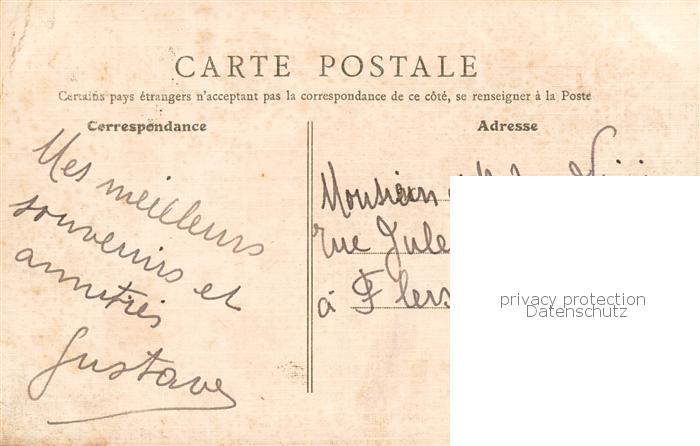 CARTE POSTALE
Certains pays étrangers n'acceptant pas la correspondance de ce côté, se renseigner à la Poste
Correspondance
Mes meilleurs
souvenirs et
amitiés
Gustave
Adresse
Monsieur
rue Jule
à Flers
privacy protection
Datenschutz